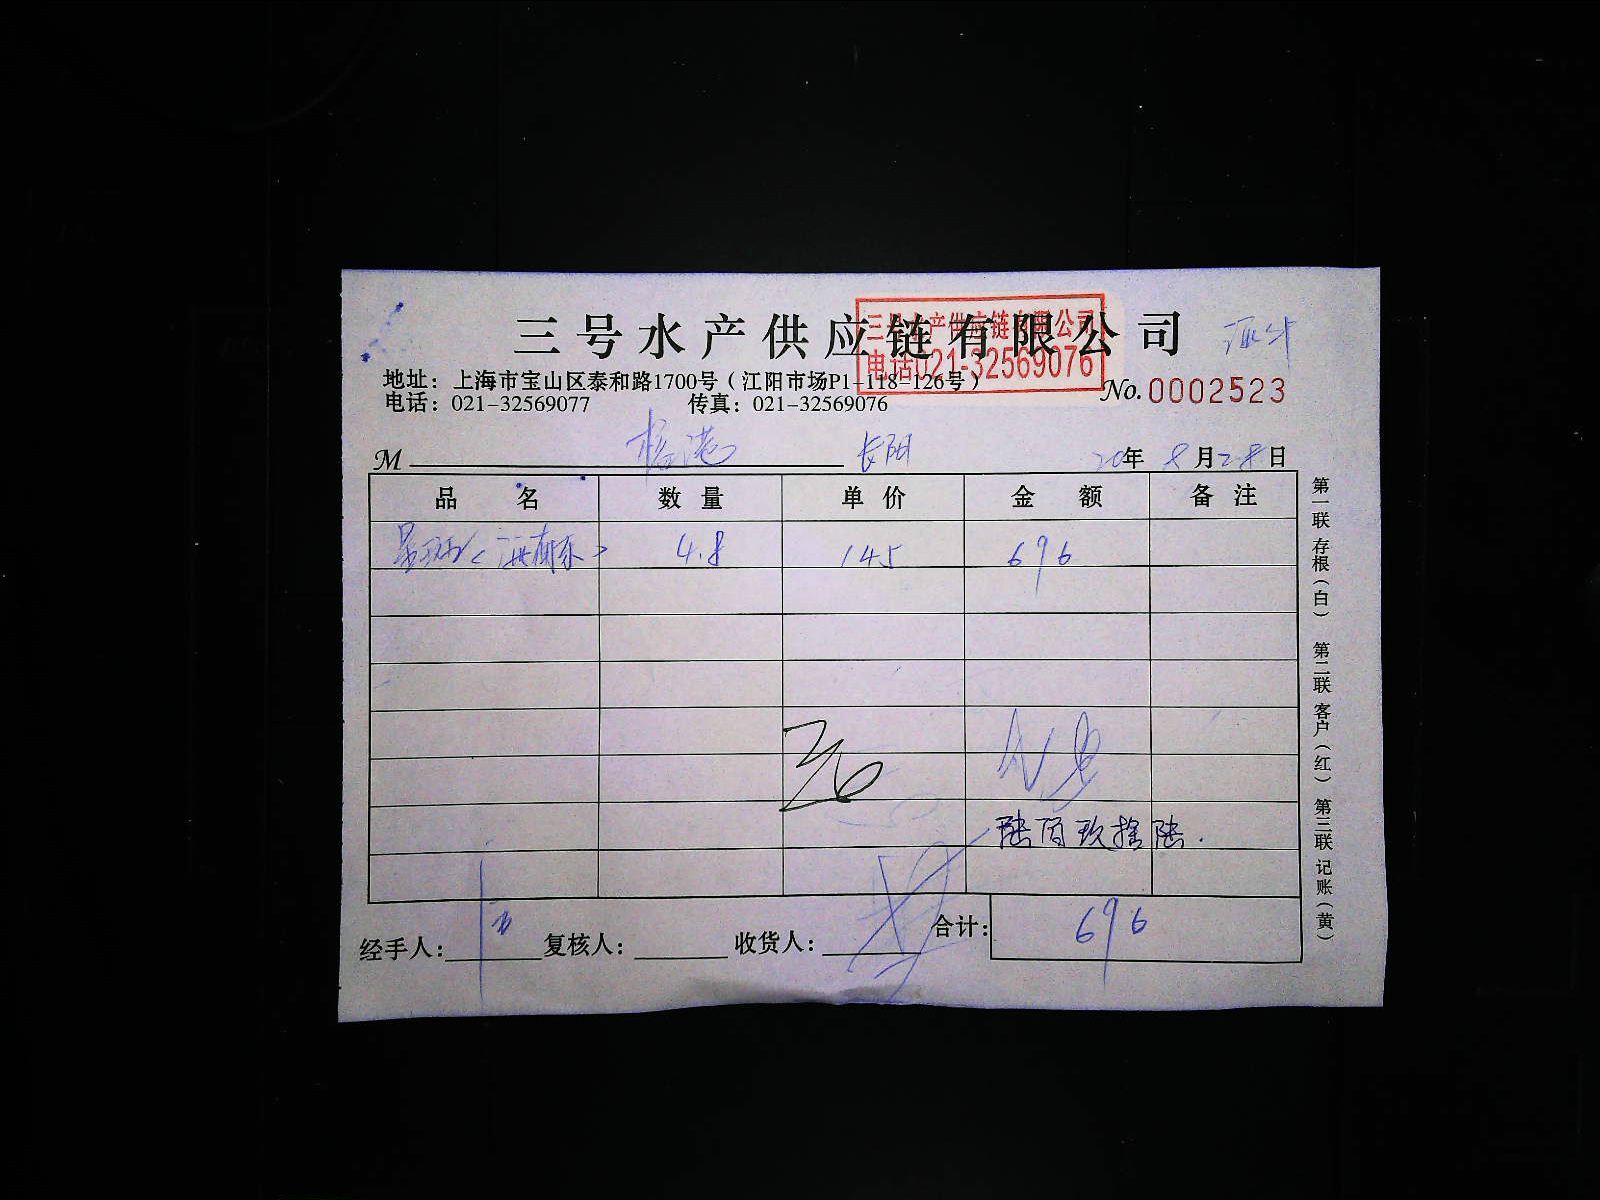 三号水产供应链有限公司
三号水产供应链有限公司
电话021-32569076
地址：上海市宝山区泰和路1700号（江阳市场P1-118-126号）
电话：021-32569077 传真：021-32569076
No.0002523
M 长阳 20年8月28日
品名 数量 单价 金额 备注
4.8 145 696
陆佰玖拾陆.
经手人： 复核人： 收货人： 合计：696
第一联 存根（白） 第二联 客户（红） 第三联 记账（黄）